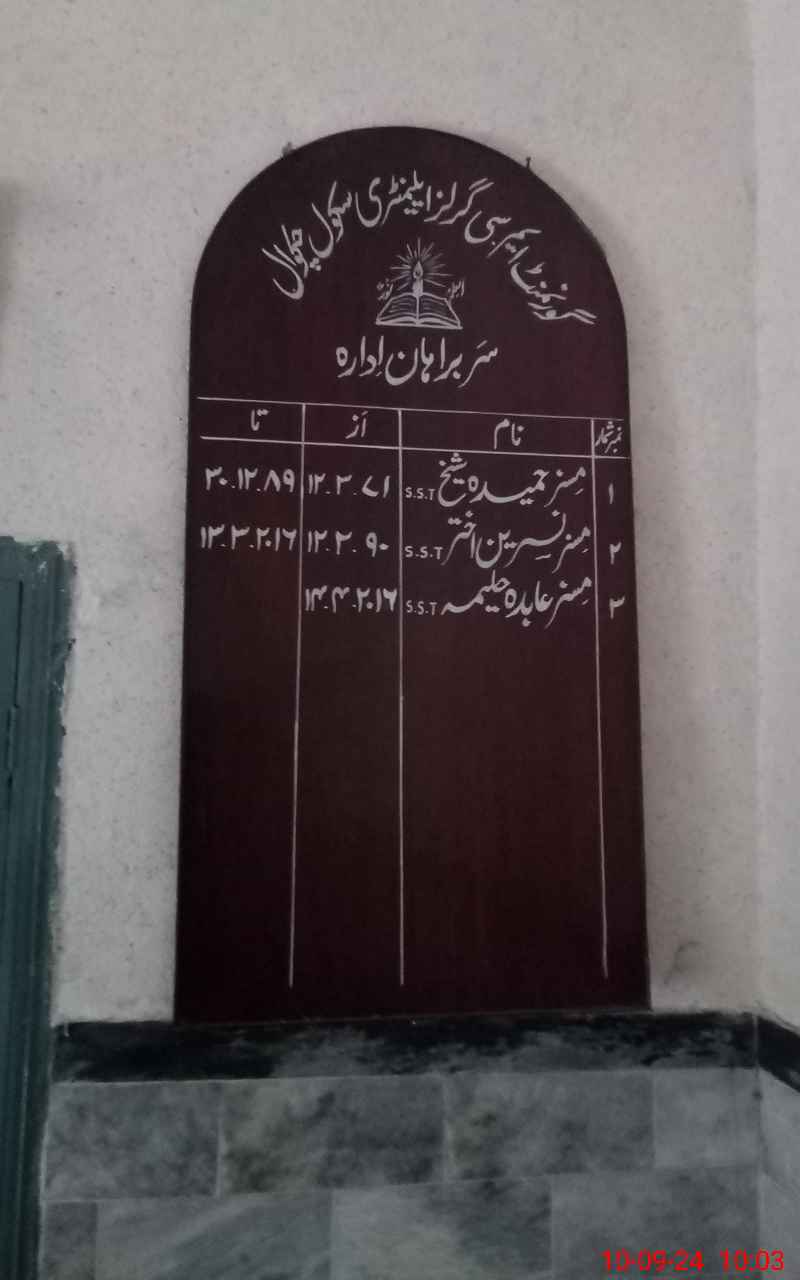 گورنمنٹ ایم سی گرلز ایلیمنٹری سکول چکوال
العلم نور
سربراہان اِدارہ
نمبر شمار نام اَز تا
۱ مسز حمیدہ شیخ S.S.T ۱۲.۳.۷۱ ۳۰.۱۲.۸۹
۲ مسز نسرین اختر S.S.T ۱۲.۳.۹۰ ۱۳.۳.۲۰۱۶
۳ مسز عابدہ حلیمہ S.S.T ۱۴.۴.۲۰۱۶
10-09-24 10:03